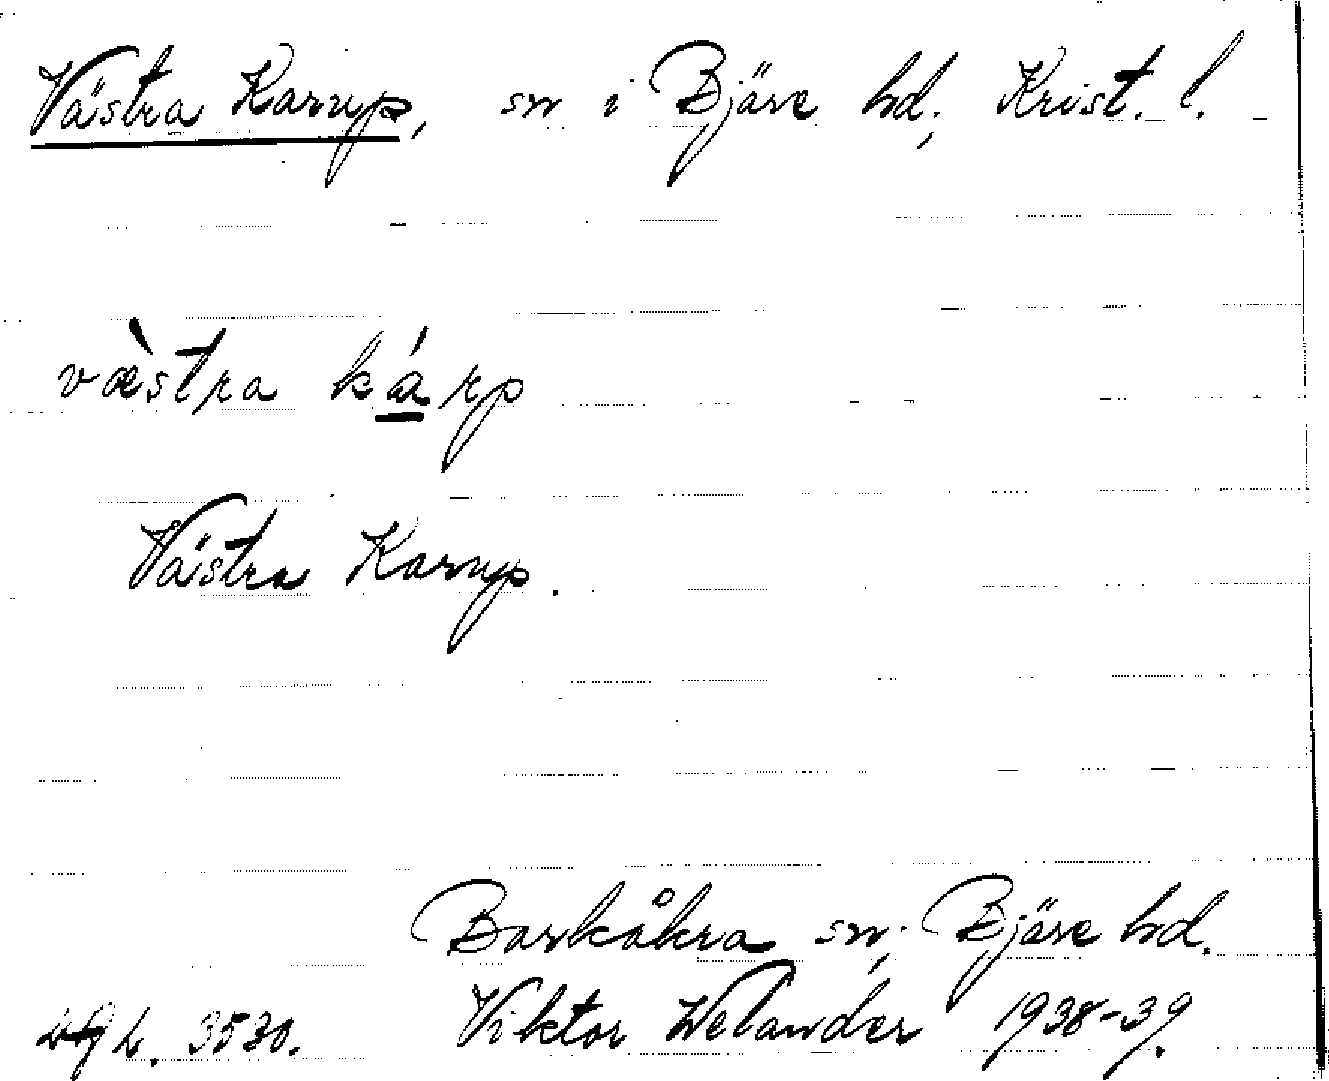 Västra Karup, sn i Bjäre hd, Krist. l.
væ̀stra ká̲rp
Västra Karup.
Barkåkra sn, Bjäre hd.
3530. Viktor Welander 1938-39.